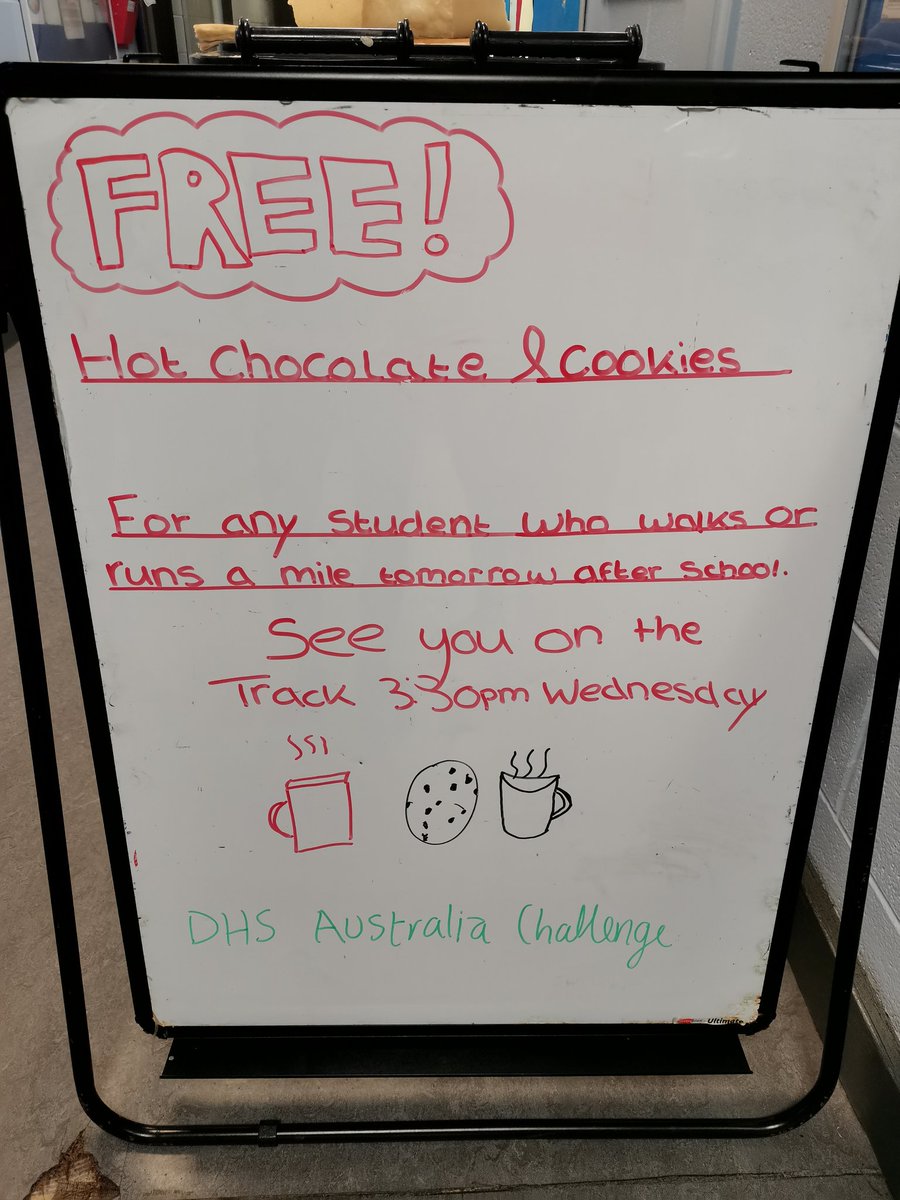 FREE!
Hot Chocolate & Cookies
For any student who walks or
runs a mile tomorrow after school.
See you on the
Track 3:30pm Wednesday
DHS Australia Challenge
Ultimate